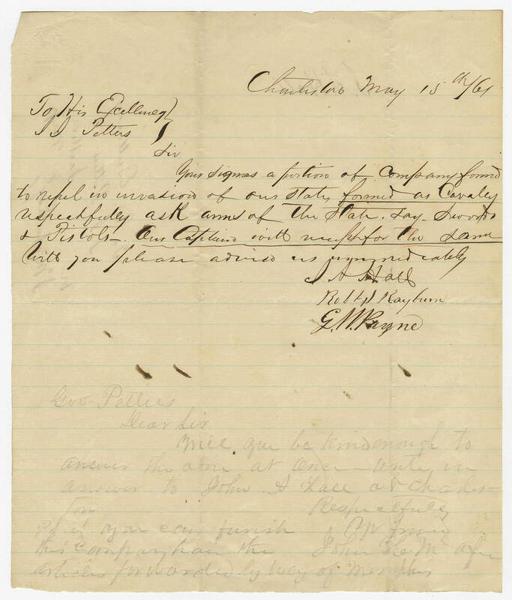 Charleston May 15th/61
To His Excellency
J J Petters
Sir
Your signas a portion of Company formed
to repel in invasion of our state formed as Cavalry
respectfully ask arms of the State. Say Swords
& Pistols. Our Captain with for the same
Will you please advise us immediately
J A Hall
Robt J Rayburn
G. W. Payne
Gov Petters
Dear Sir
Will you be kind enough to
answer the above at once – write in
answer to John A at Charles-
ton Respectfully
if you can furnish
this company have the John
articles forwarded by way of Memphis